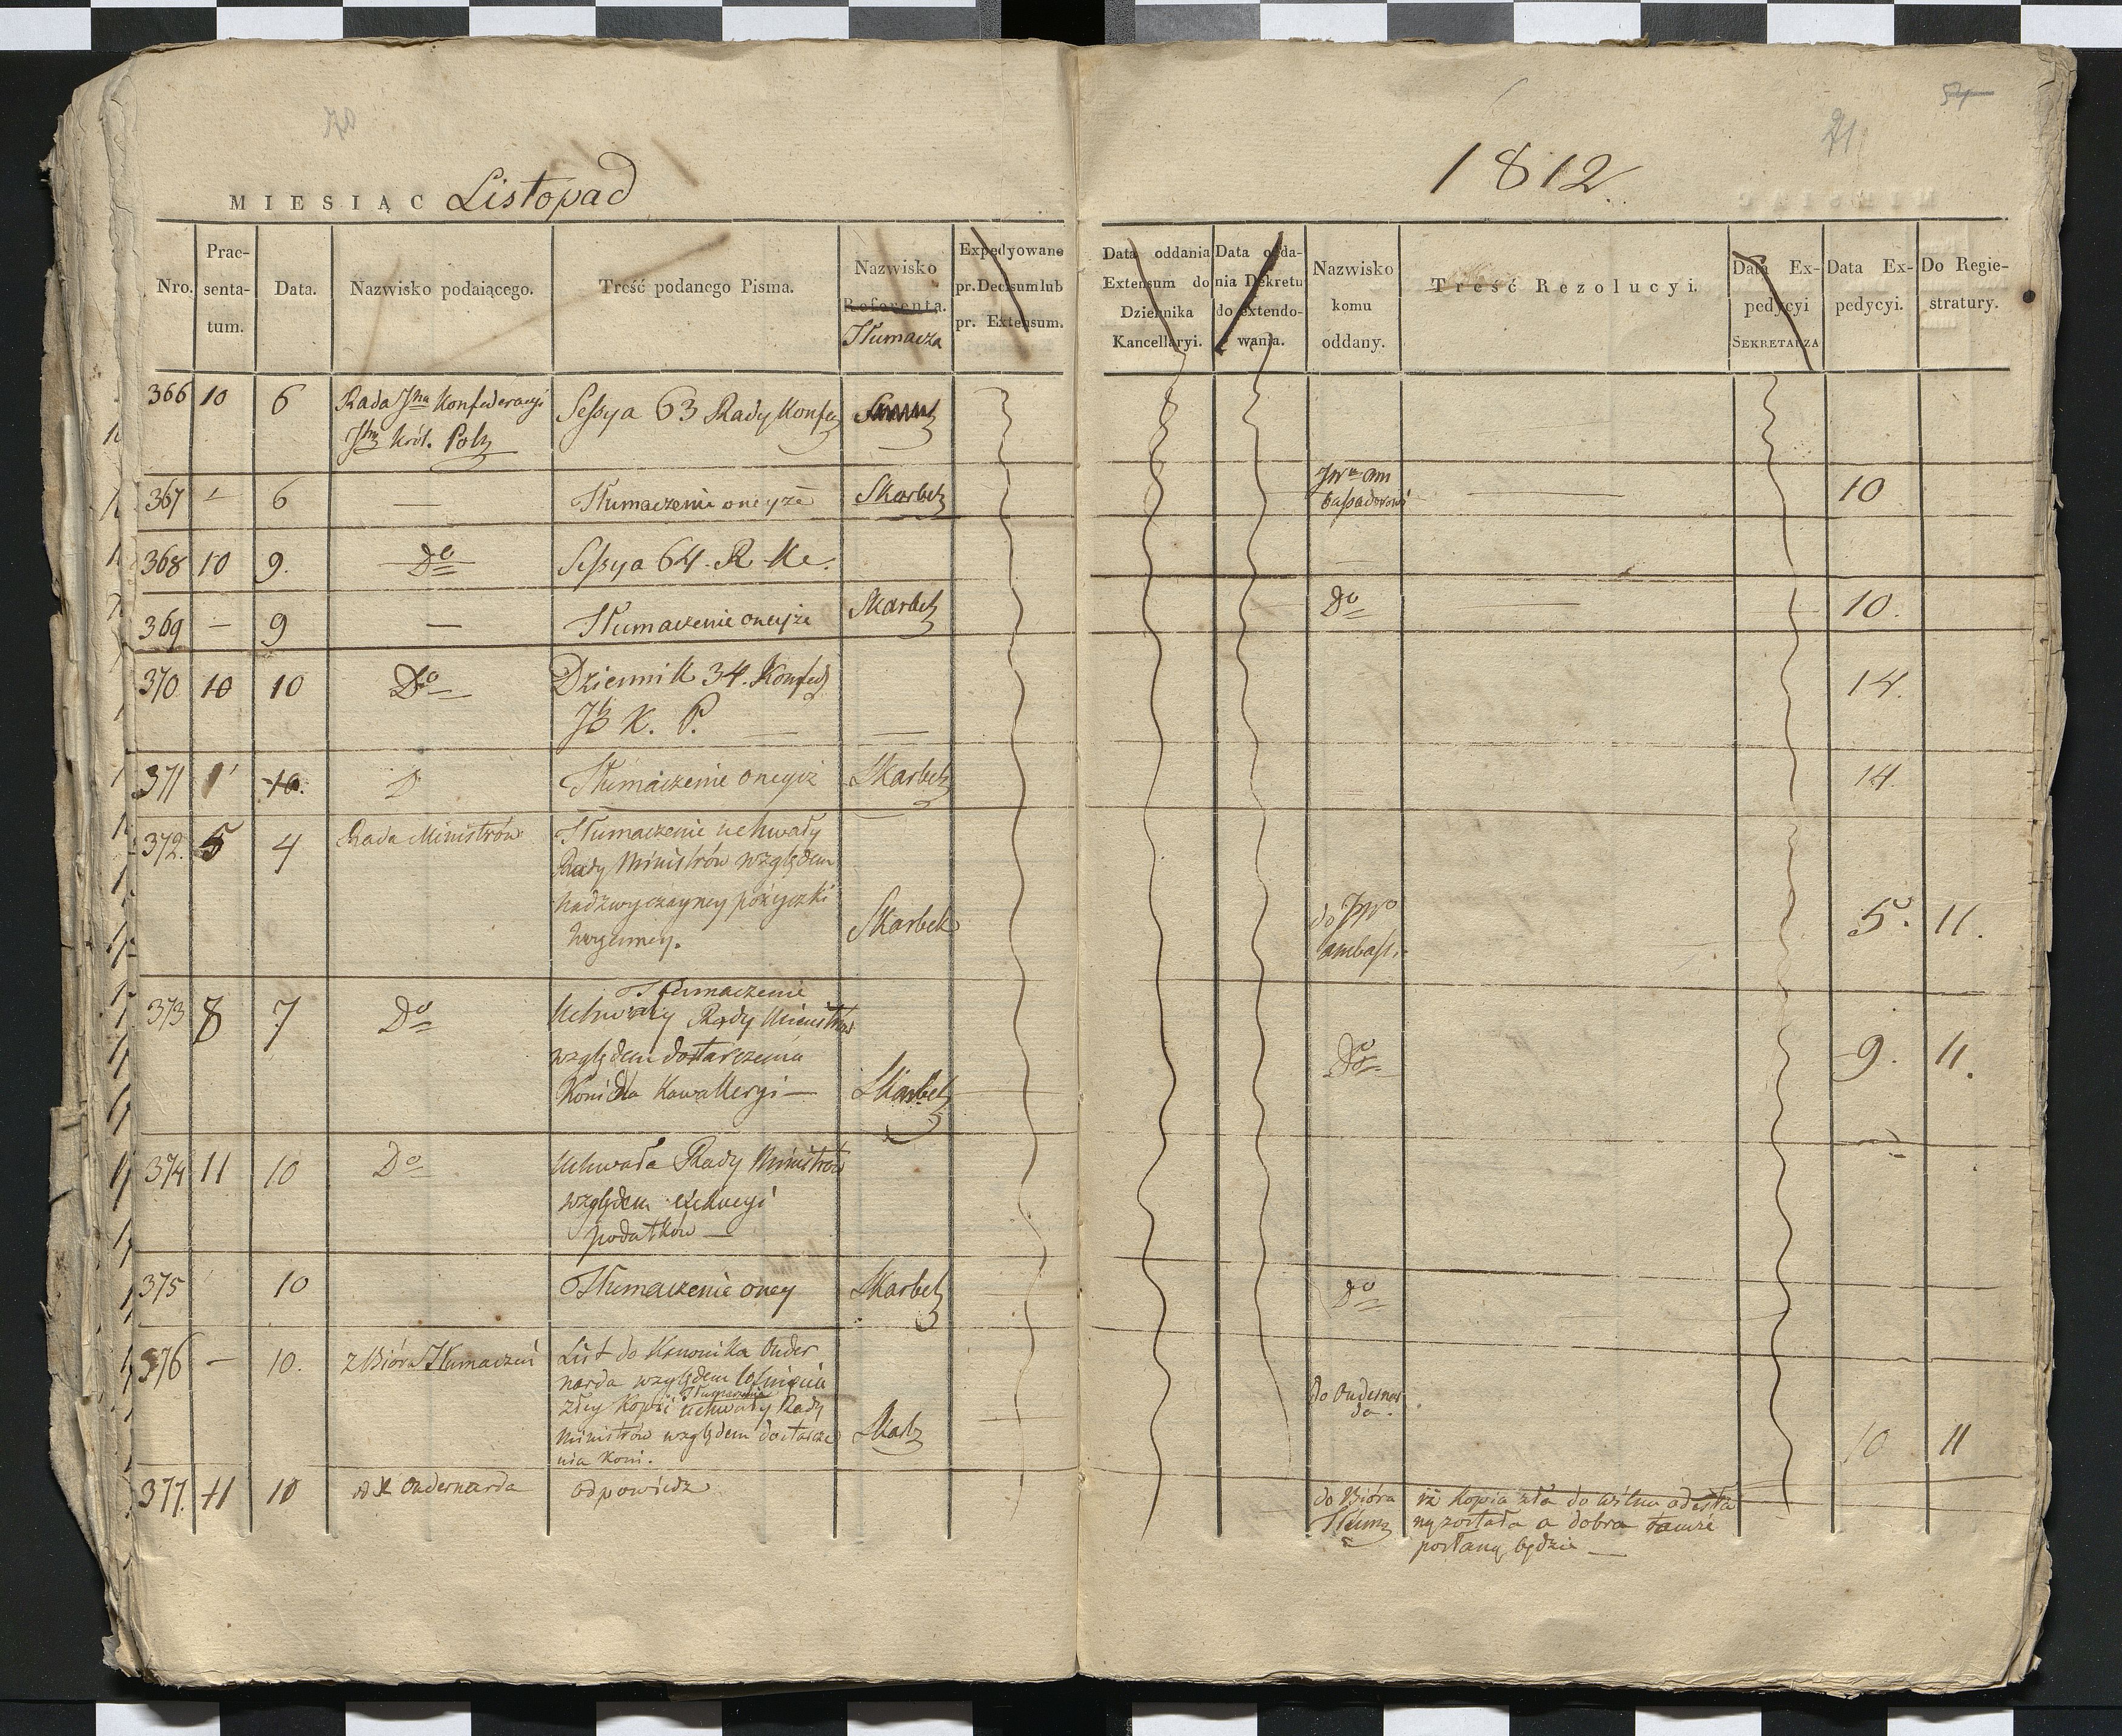 70
MIESIĄC Listopad
Nro.
Prae-
senta-
tum.
Data.
Nazwisko podaiącego.
Treść podanego Pisma.
Nazwisko
Referenta.
Tłumacza
Expedyowane
pr. Decisum lub
pr. Extensum.
366 10 6 Rada Konfederacyi Sessya 63 Rady Konfed
Król. Pols
367 — 6 — Tłumaczenie oneyże Skarbek
368 10 9. Do Sessya 64. R Ke.
369 — 9 — Tłumaczenie oneyże Skarbek
370 10 10 Do Dziennik 34. Konfed
K. P.
371 10. D Tłumaczenie onegoż Skarbek
372. 5 4 Rada Ministrów Tłumaczenie uchwały
Rady Ministrów względem
nadzwyczayney pożyczki
Skarbek
373 8 7 Do Tłumaczenie
Uchwały Rady Ministrów
względem dostarczenia
Koni dla Kawalleryi — Skarbek
374 11 10 Do Uchwała Rady Ministrów
względem exekucyi
podatków —
375 10 Tłumaczenie oney Skarbek
376 — 10. z Bióra Tłumaczeń List do Kanonika Ouder
narda względem cofnięcia
złey Kopii Tłumaczenia uchwały Rady
Ministrów względem dostarcze
nia koni. Skarb
377. 11 10 od X Oudernarda odpowiedz
54
71
1812
Data oddania
Extensum do
Dziennika
Kancellaryi.
Data odda-
nia Dekretu
do extendo-
wania.
Nazwisko
komu
oddany.
Treść Rezolucyi.
Data Ex-
pedycyi
SEKRETARZA
Data Ex-
pedycyi.
Do Regie-
stratury.
JWu Am
bassadorowi 10
Do 10.
14.
14.
do JWo
ambass. 5. 11.
Do 9. 11.
Do
do Oudernar
da. 10 11
do Bióra iż kopia zła do Wilna odesła
Tłum ną została a dobra tamże
posłaną będzie —